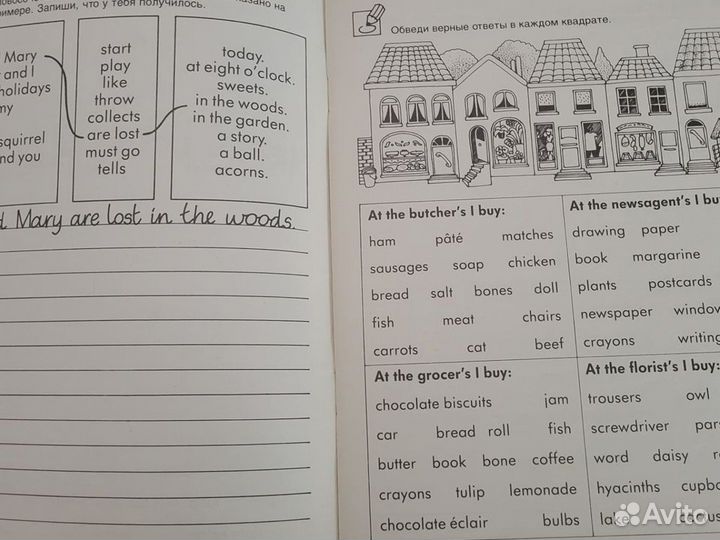 примере. Запиши, что у тебя получилось.
казано на
Mary
and I
holidays
my
squirrel
and you
start
play
like
throw
collects
are lost
must go
tells
today.
at eight o'clock.
sweets.
in the woods.
in the garden.
a story.
a ball.
acorns.
Mary are lost in the woods.
Обведи верные ответы в каждом квадрате.
At the butcher's I buy:
ham pâté matches
sausages soap chicken
bread salt bones doll
fish meat chairs
carrots cat beef
At the newsagent's I buy
drawing paper
book margarine
plants postcards
newspaper window
crayons writing
At the grocer's I buy:
chocolate biscuits jam
car bread roll fish
butter book bone coffee
crayons tulip lemonade
chocolate éclair bulbs
At the florist's I buy:
trousers owl
screwdriver pars
word daisy
hyacinths cupbo
Avito